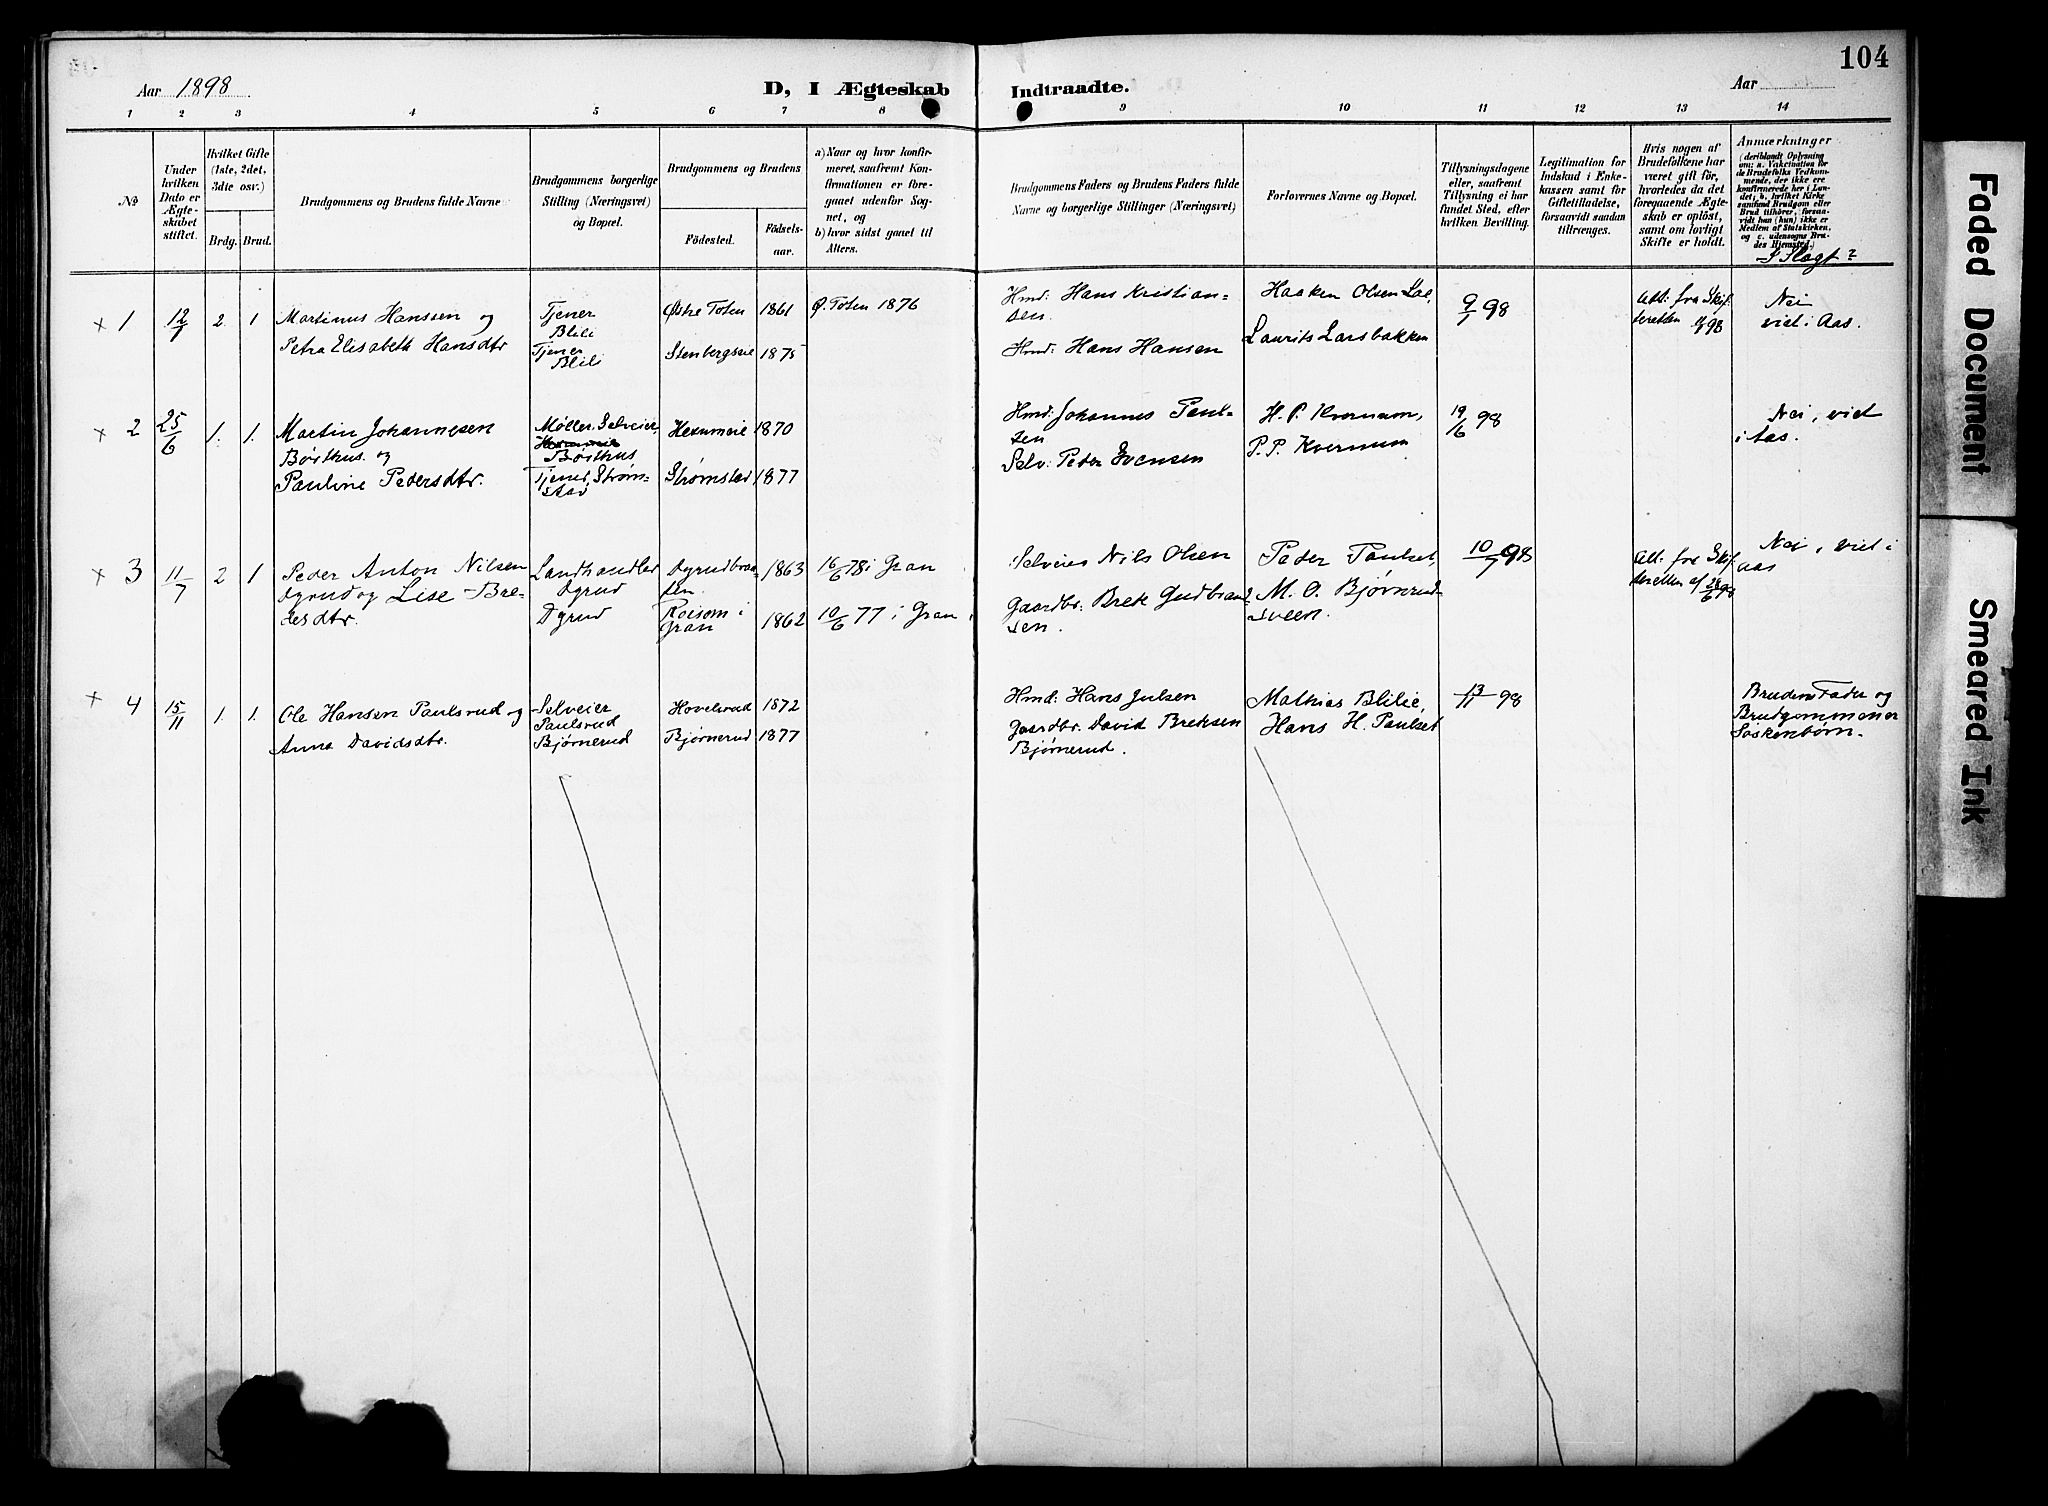 104
Aar 1898.
D, I Ægteskab Indtraadte.
Aar
1 2 3 4 5 6 7 8 9 10 11 12 13 14
No
Under
hvilken
Dato er
Ægte-
skabet
stiftet.
Hvilket Gifte
(1ste, 2det,
3die osv.)
Brdg. Brud.
Brudgommens og Brudens fulde Navne
Brudgommens borgerlige
Stilling (Næringsvei)
og Bopæl.
Brudgommens og Brudens
Fødested.
Fødsels-
aar.
a) Naar og hvor konfir-
meret, saafremt Kon-
firmationen er fore-
gaaet udenfor Sog-
net, og
b) hvor sidst gaaet til
Alters.
Brudgommens Faders og Brudens Faders fulde
Navne og borgerlige Stillinger (Næringsvei)
Forlovernes Navne og Bopæl.
Tillysningsdagene
eller, saafremt
Tillysning ei har
fundet Sted, efter
hvilken Bevilling.
Legitimation for
Indskud i Enke-
kassen samt for
Giftetilladelse,
forsaavidt saadan
tiltrænges.
Hvis nogen af
Brudefolkene har
været gift før,
hvorledes da det
foregaaende Ægte-
skab er opløst,
samt om lovligt
Skifte er holdt.
Anmærkninger
(deriblandt Oplysning
om: a. Vakcination for
de Brudefolks Vedkom-
mende, der ikke ere
konfirmerede her i Lan-
det, b. hvilket Kirke-
samfund Brudgom eller
Brud tilhører, forsaa-
vidt han (hun) ikke er
Medlem af Statskirken,
og c. udensogns Bru-
des Hjemsted.)
I Slægt?
× 1
12/7
2. 1
Martinus Hanssen og
Petra Elisabeth Hansdtr
Tjener
Blili
Tjener
Blili
Østre Toten 1861
Stenbergseie 1875
Ø. Toten 1876
Hmd: Hans Kristian-
sen.
Hmd: Hans Hansen
Haaken Olsen Lae,
Laurits Larsbakken
9/7 98
Att: fra Skif-
teretten 98
Nei
viet i Aas.
× 2
25/6
1. 1.
Martin Johannesen
Børthus. og
Pauline Pedersdtr.
Møller, Selveier,
Børthus
Tjener, Strøm-
stad
Hexumeie 1870
Strømstad 1877
Hmd: Johannes Paul-
sen
Selv: Peder Evensen
H. P. Kvernum,
P. P. Kvernum
19/6 98
Nei, viet
i Aas.
× 3
11/7
2 1
Peder Anton Nilsen
Dyrud og Lise Bre-
desdtr.
Landhandler
Dyrud
Dyrud
Dyrudbraa-
ten. 1863
Roisom i
Gran 1862
16/6 78 i Gran
10/6 77 i Gran.
Selveier Nils Olsen
Gaardbr: Brede Gudbrand-
sen.
Peder Paulset,
M. O. Bjørnerud-
sveen.
10/7 98
Att. fra Skif-
teretten af 28/6 98
Nei, viet i
Aas
× 4
15/11
1. 1.
Ole Hansen Paulsrud og
Anna Davidsdtr.
Selveier
Paulsrud
Bjørnerud
Hovelsrud 1872
Bjørnerud 1877
Hmd: Hans Julsen
Gaardbr. David Bredesen
Bjørnerud.
Mathias Blilie,
Hans H. Paulset
13/11 98
Brudens Fader og
Brudgommen er
Søskenbørn.
Faded Document
Smeared Ink